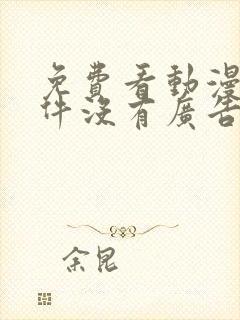 免費看動漫
件沒有廣告
余昆